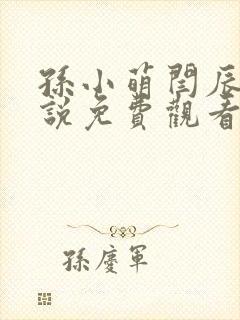 孫小萌閆辰
說免費觀看
孫慶軍